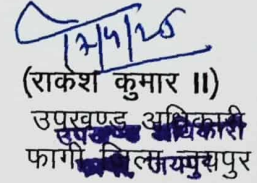 17/9/25
(राकेश कुमार II)
उपखण्ड अधिकारी
उपखण्ड अधिकारी
फागी जिला जयपुर
जयपुर